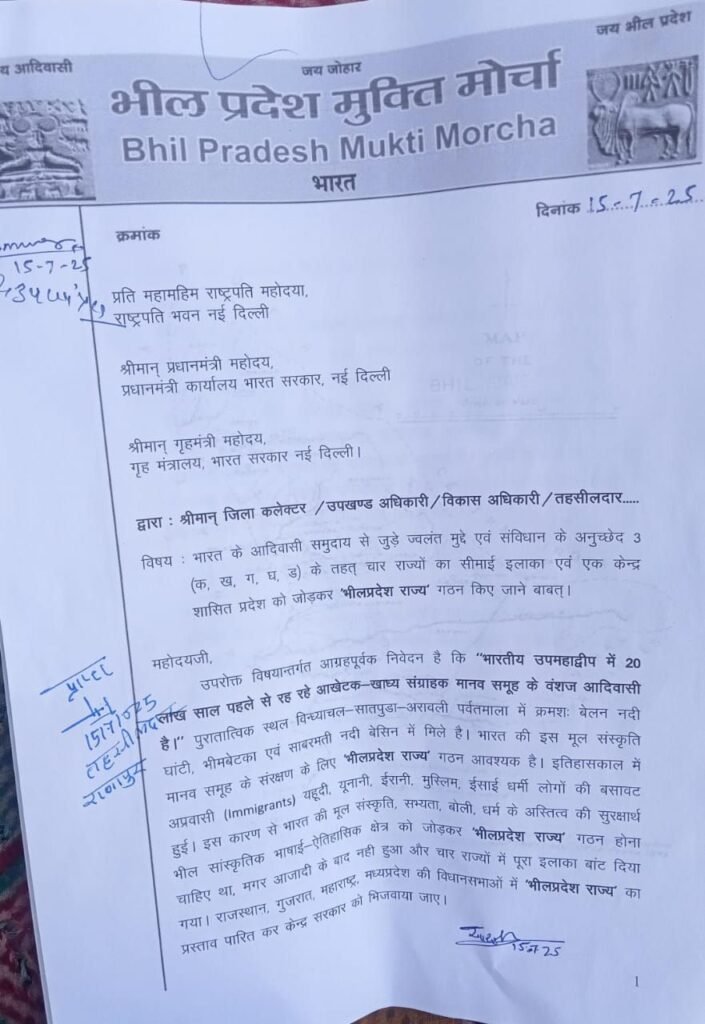 य आदिवासी
जय जोहार
जय भील प्रदेश
भील प्रदेश मुक्ति मोर्चा
Bhil Pradesh Mukti Morcha
भारत
दिनांक 15-7-25
क्रमांक
15-7-25
प्रति महामहिम राष्ट्रपति महोदया,
राष्ट्रपति भवन नई दिल्ली
श्रीमान् प्रधानमंत्री महोदय,
प्रधानमंत्री कार्यालय भारत सरकार, नई दिल्ली
श्रीमान् गृहमंत्री महोदय,
गृह मंत्रालय, भारत सरकार नई दिल्ली।
द्वारा : श्रीमान् जिला कलेक्टर /उपखण्ड अधिकारी/विकास अधिकारी/तहसीलदार.....
विषय : भारत के आदिवासी समुदाय से जुड़े ज्वलंत मुद्दे एवं संविधान के अनुच्छेद 3
(क, ख, ग, घ, ड) के तहत् चार राज्यों का सीमाई इलाका एवं एक केन्द्र
शासित प्रदेश को जोड़कर 'भीलप्रदेश राज्य' गठन किए जाने बाबत्।
महोदयजी,
उपरोक्त विषयान्तर्गत आग्रहपूर्वक निवेदन है कि "भारतीय उपमहाद्वीप में 20
लाख साल पहले से रह रहे आखेटक–खाध्य संग्राहक मानव समूह के वंशज आदिवासी
है।" पुरातात्विक स्थल विन्ध्याचल–सातपुडा–अरावली पर्वतमाला में क्रमशः बेलन नदी
घांटी, भीमबेटका एवं साबरमती नदी बेसिन में मिले है। भारत की इस मूल संस्कृति
मानव समूह के संरक्षण के लिए 'भीलप्रदेश राज्य' गठन आवश्यक है। इतिहासकाल में
अप्रवासी (Immigrants) यहूदी, यूनानी, ईरानी, मुस्लिम, ईसाई धर्मी लोगों की बसावट
हुई। इस कारण से भारत की मूल संस्कृति, सभ्यता, बोली, धर्म के अस्तित्व की सुरक्षार्थ
भील सांस्कृतिक भाषाई–ऐतिहासिक क्षेत्र को जोड़कर 'भीलप्रदेश राज्य' गठन होना
चाहिए था, मगर आजादी के बाद नही हुआ और चार राज्यों में पूरा इलाका बांट दिया
गया। राजस्थान, गुजरात, महाराष्ट्र, मध्यप्रदेश की विधानसभाओं में 'भीलप्रदेश राज्य' का
प्रस्ताव पारित कर केन्द्र सरकार को भिजवाया जाए।
15-7-25
1